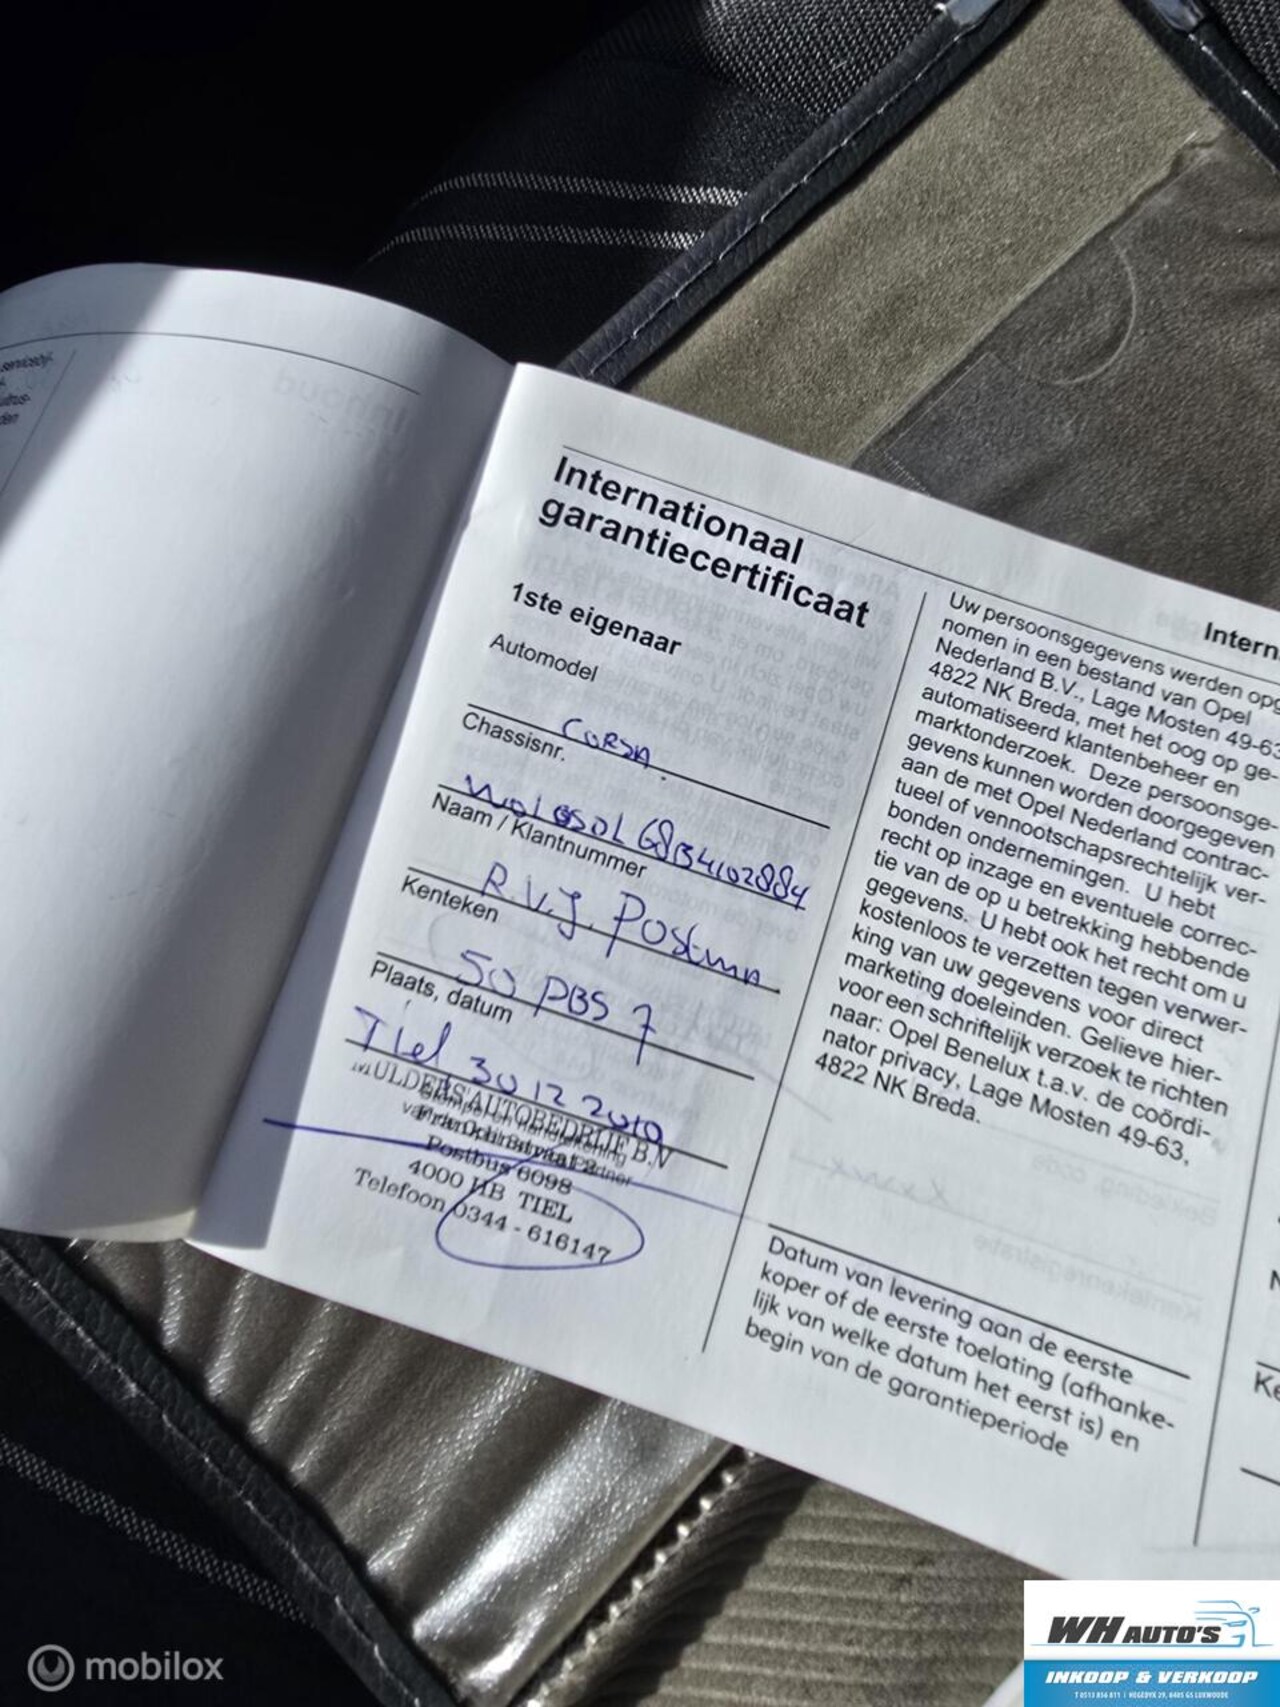 servicebij-
den
Internationaal
garantiecertificaat
1ste eigenaar
Automodel
CORSA.
Chassisnr.
W0L0SDL68B4102884
Naam / Klantnummer
R.V.J. Postma
Kenteken
50 PBS 7
Plaats, datum
Tiel 30 12 2010
MULDERS AUTOBEDRIJF B.V
Postbus 6098
4000 HB TIEL
Telefoon 0344 - 616147
Intern
Uw persoonsgegevens werden opg
nomen in een bestand van Opel
Nederland B.V., Lage Mosten 49-63
4822 NK Breda, met het oog op ge-
automatiseerd klantenbeheer en
marktonderzoek. Deze persoonsge-
gevens kunnen worden doorgegeven
aan de met Opel Nederland contrac-
tueel of vennootschapsrechtelijk ver-
bonden ondernemingen. U hebt
recht op inzage en eventuele correc-
tie van de op u betrekking hebbende
gegevens. U hebt ook het recht om u
kostenloos te verzetten tegen verwer-
king van uw gegevens voor direct
marketing doeleinden. Gelieve hier-
voor een schriftelijk verzoek te richten
naar: Opel Benelux t.a.v. de coördi-
nator privacy, Lage Mosten 49-63,
4822 NK Breda.
Datum van levering aan de eerste
koper of de eerste toelating (afhanke-
lijk van welke datum het eerst is) en
begin van de garantieperiode
N
Ke
mobilox
WH AUTO'S
INKOOP & VERKOOP
T 0513 856 811 | HEGEDYK 29, 8405 GS LUXWOUDE